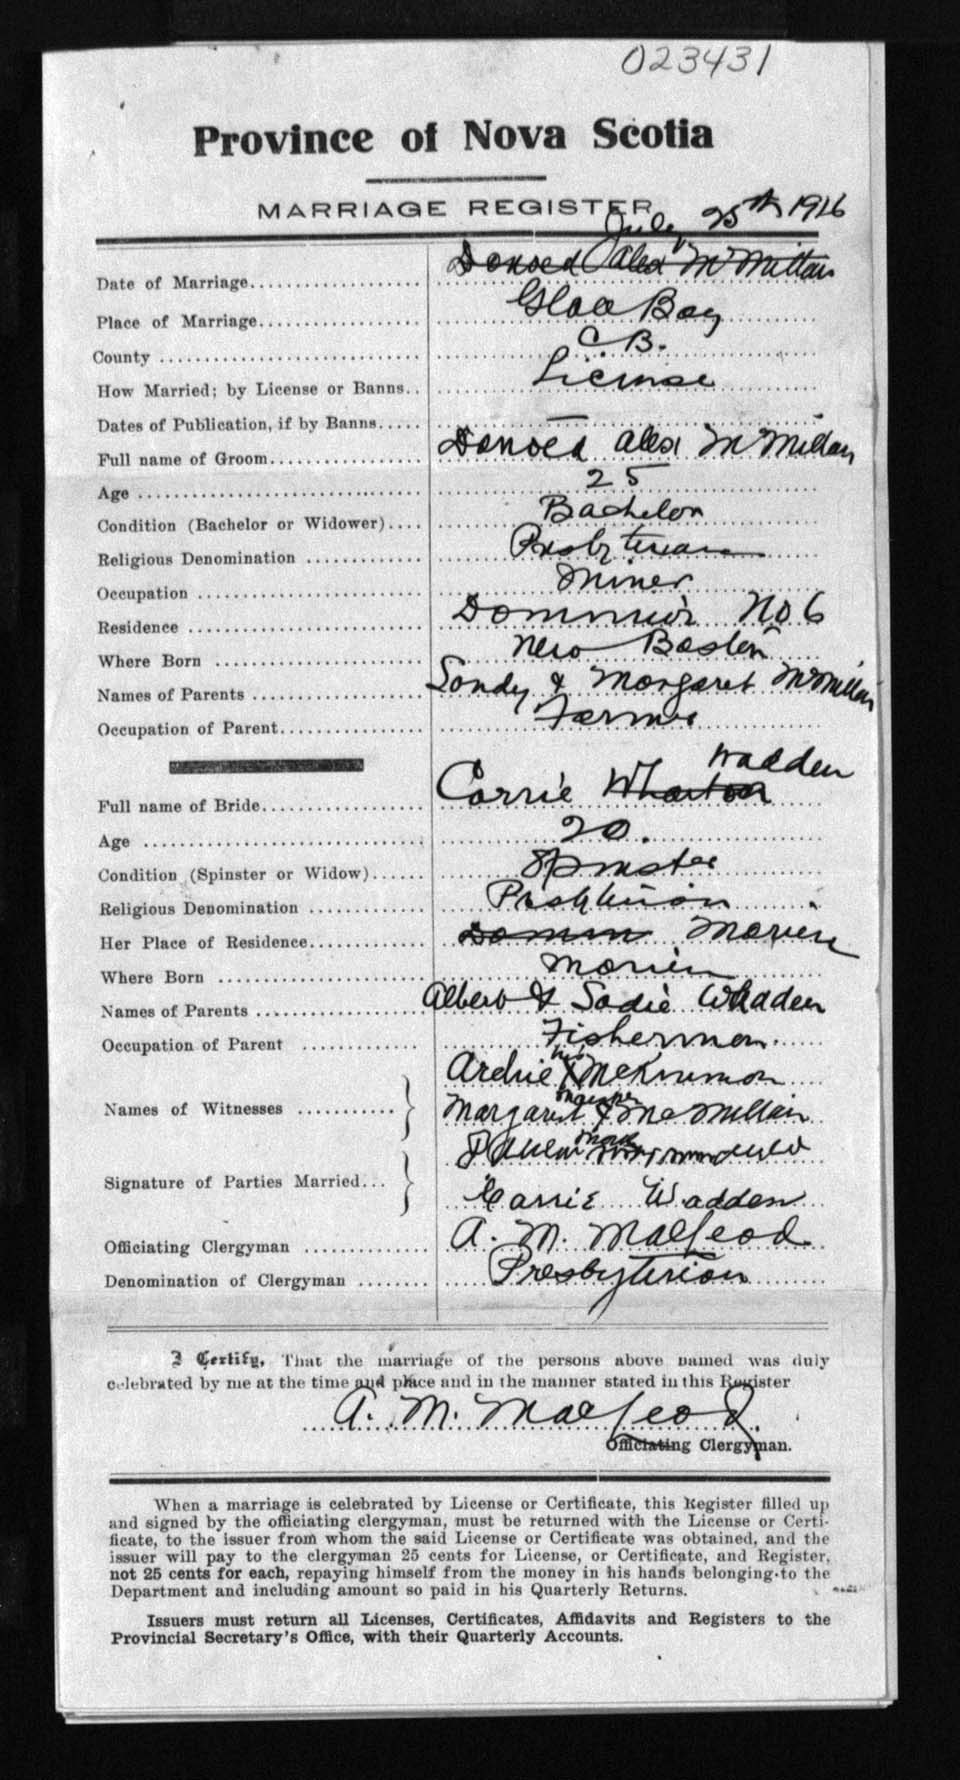 023431
Province of Nova Scotia
MARRIAGE REGISTER
July 25th 1916
Date of Marriage Donald Alex McMillan
Place of Marriage Glace Bay
County C.B.
How Married; by License or Banns License
Dates of Publication, if by Banns —
Full name of Groom Donald Alex McMillan
Age 25
Condition (Bachelor or Widower) Bachelor
Religious Denomination Presbyterian
Occupation Miner
Residence Dominion No 6
Where Born New Boston
Names of Parents Sandy & Margaret McMillan
Occupation of Parent Farmer
Wadden
Full name of Bride Carrie Wharton
Age 20.
Condition (Spinster or Widow) Spinster
Religious Denomination Presbyterian
Her Place of Residence Domin Morien
Where Born Morien
Names of Parents Albert & Sadie Whadden
Occupation of Parent Fisherman
Names of Witnesses Archie McKinnon
Margaret McMillan
Signature of Parties Married
Carrie Wadden
Officiating Clergyman A. M. MacLeod
Denomination of Clergyman Presbyterian
I Certify, That the marriage of the persons above named was duly
celebrated by me at the time and place and in the manner stated in this Register
A. M. MacLeod.
Officiating Clergyman.
When a marriage is celebrated by License or Certificate, this Register filled up
and signed by the officiating clergyman, must be returned with the License or Certi-
ficate, to the issuer from whom the said License or Certificate was obtained, and the
issuer will pay to the clergyman 25 cents for License, or Certificate, and Register,
not 25 cents for each, repaying himself from the money in his hands belonging to the
Department and including amount so paid in his Quarterly Returns.
Issuers must return all Licenses, Certificates, Affidavits and Registers to the
Provincial Secretary's Office, with their Quarterly Accounts.